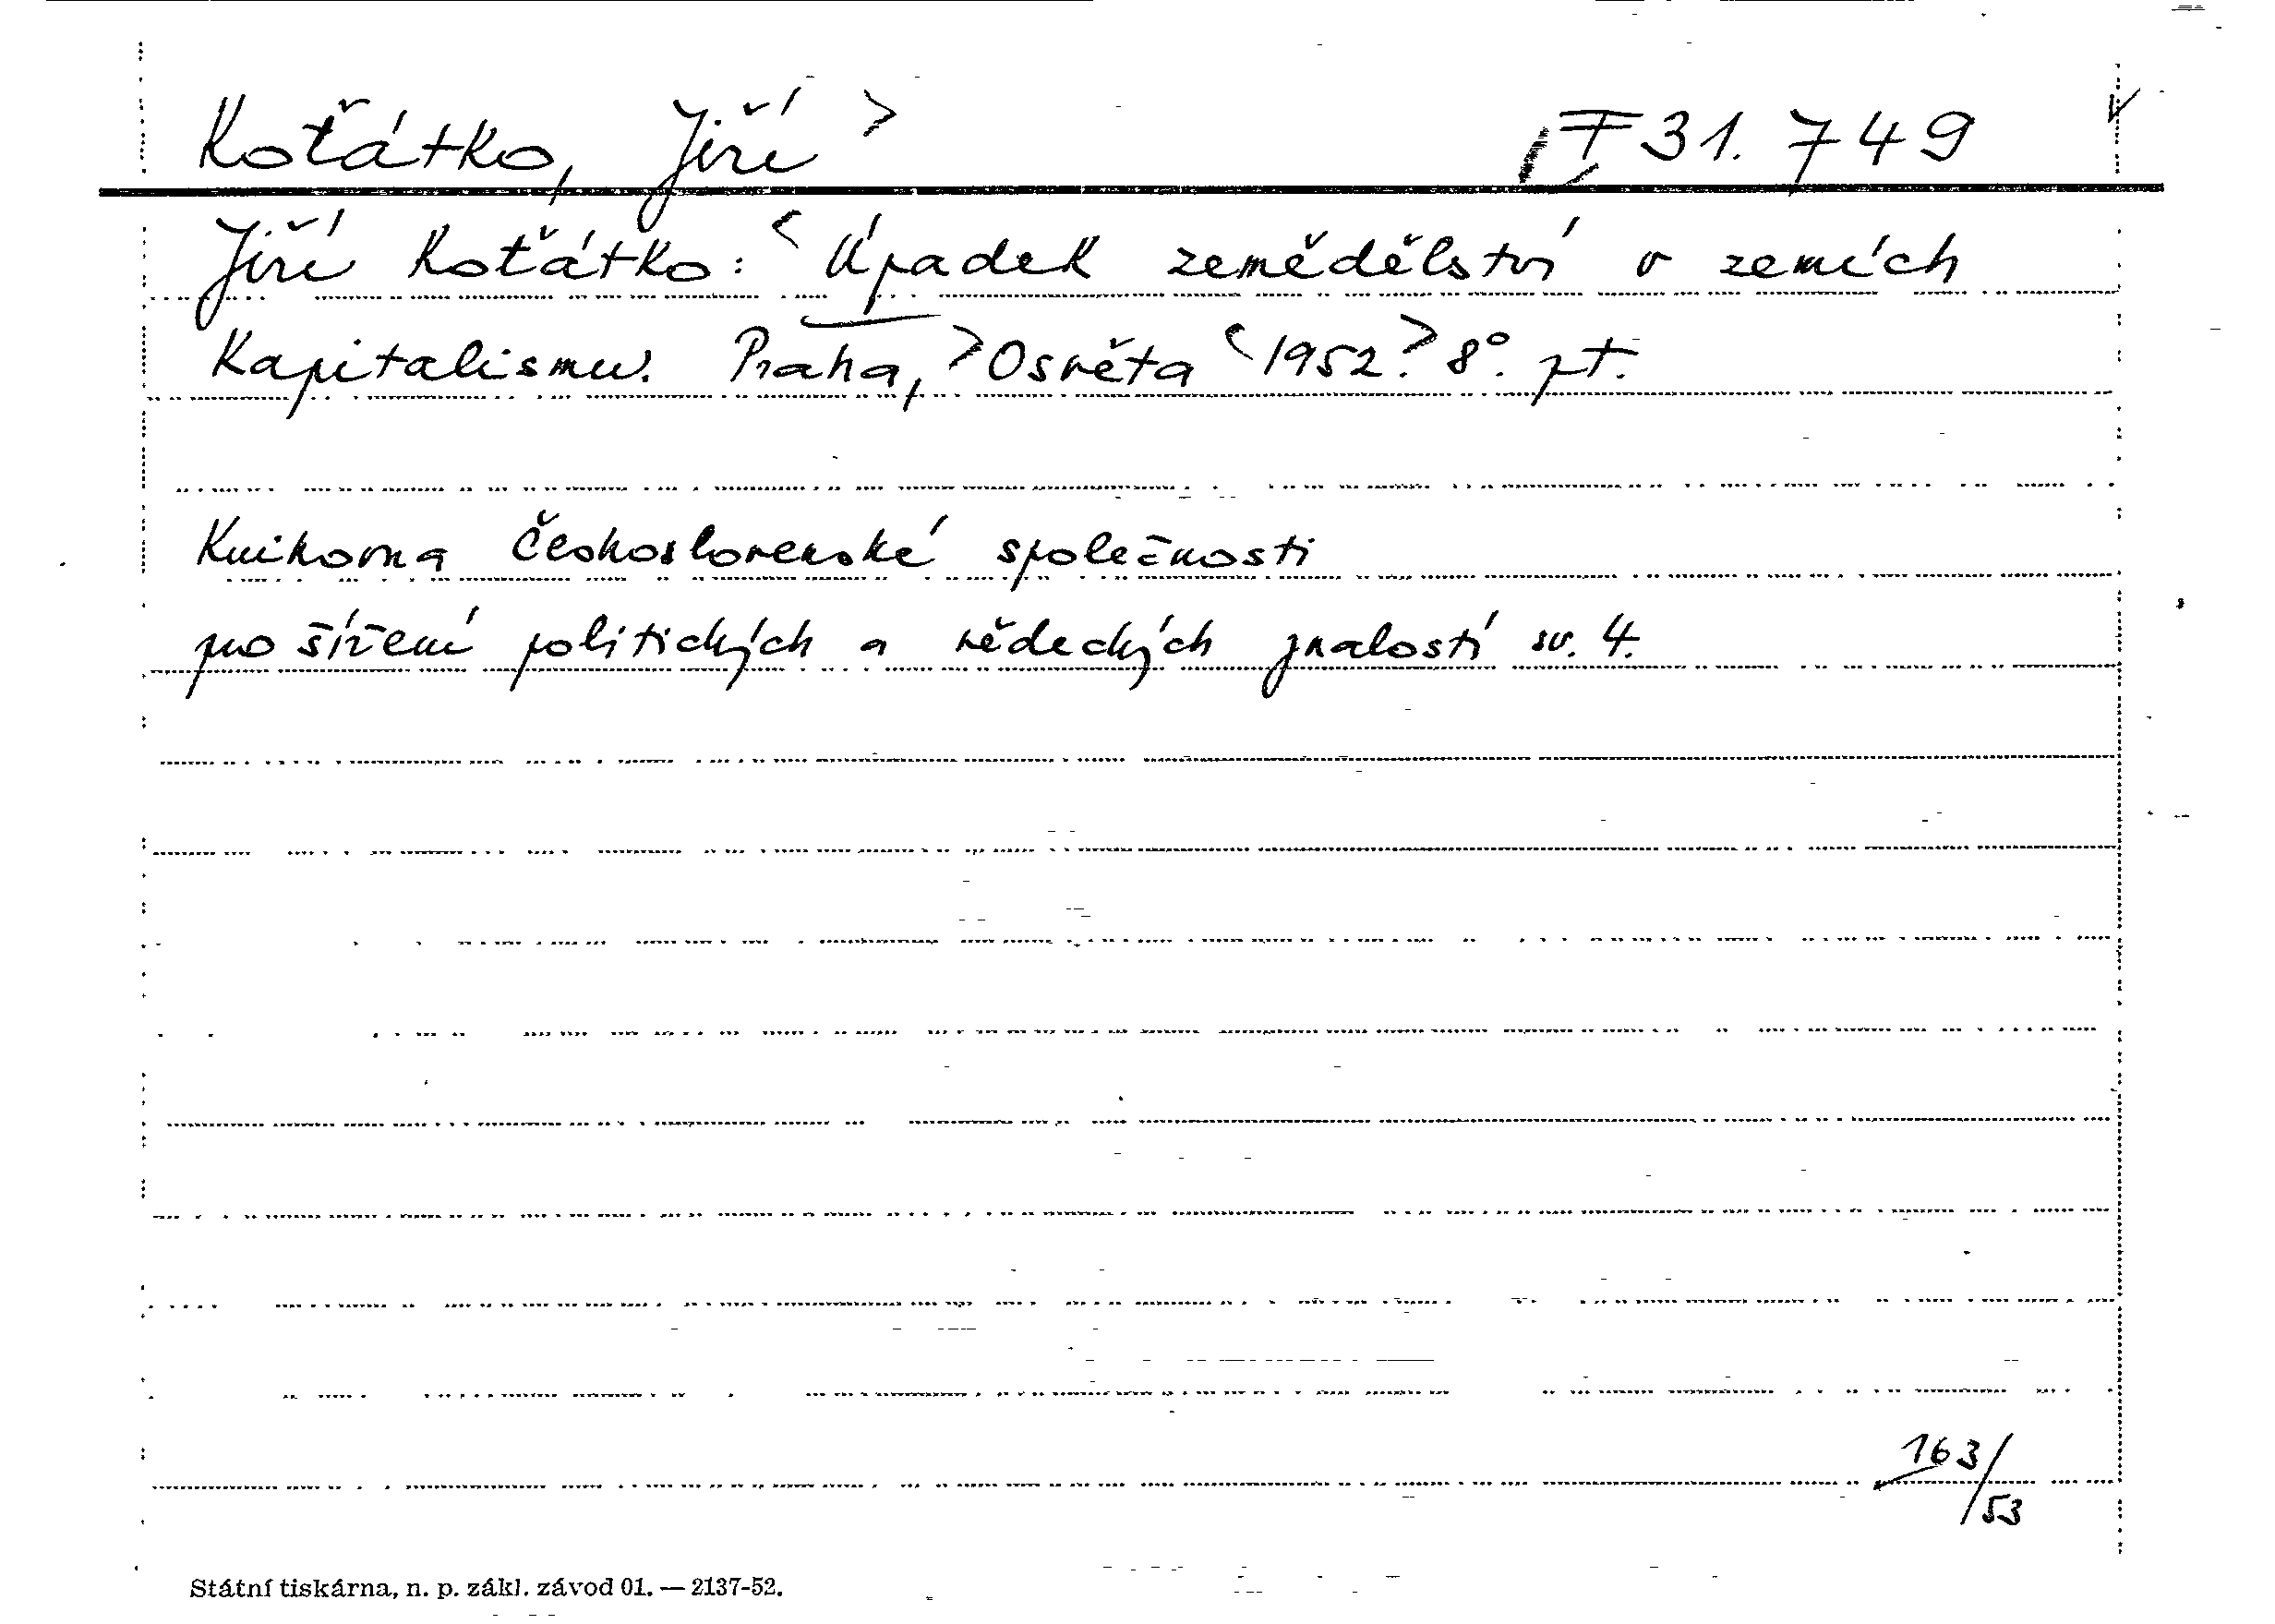 Koťátko, Jiří > F 31.749
Jiří Koťátko: <Úpadek zemědělství v zemích
kapitalismu. Praha, >Osvěta <1952.> 8°. pt.
Knihovna Československé společnosti
pro šíření politických a vědeckých znalostí sv. 4.
163/53
Státní tiskárna, n. p. zákl. závod 01. — 2137-52.